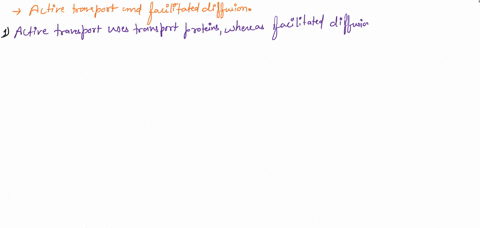 → Active transport and facilitated diffusion.
1) Active transport uses transport proteins, whereas facilitated diffusion